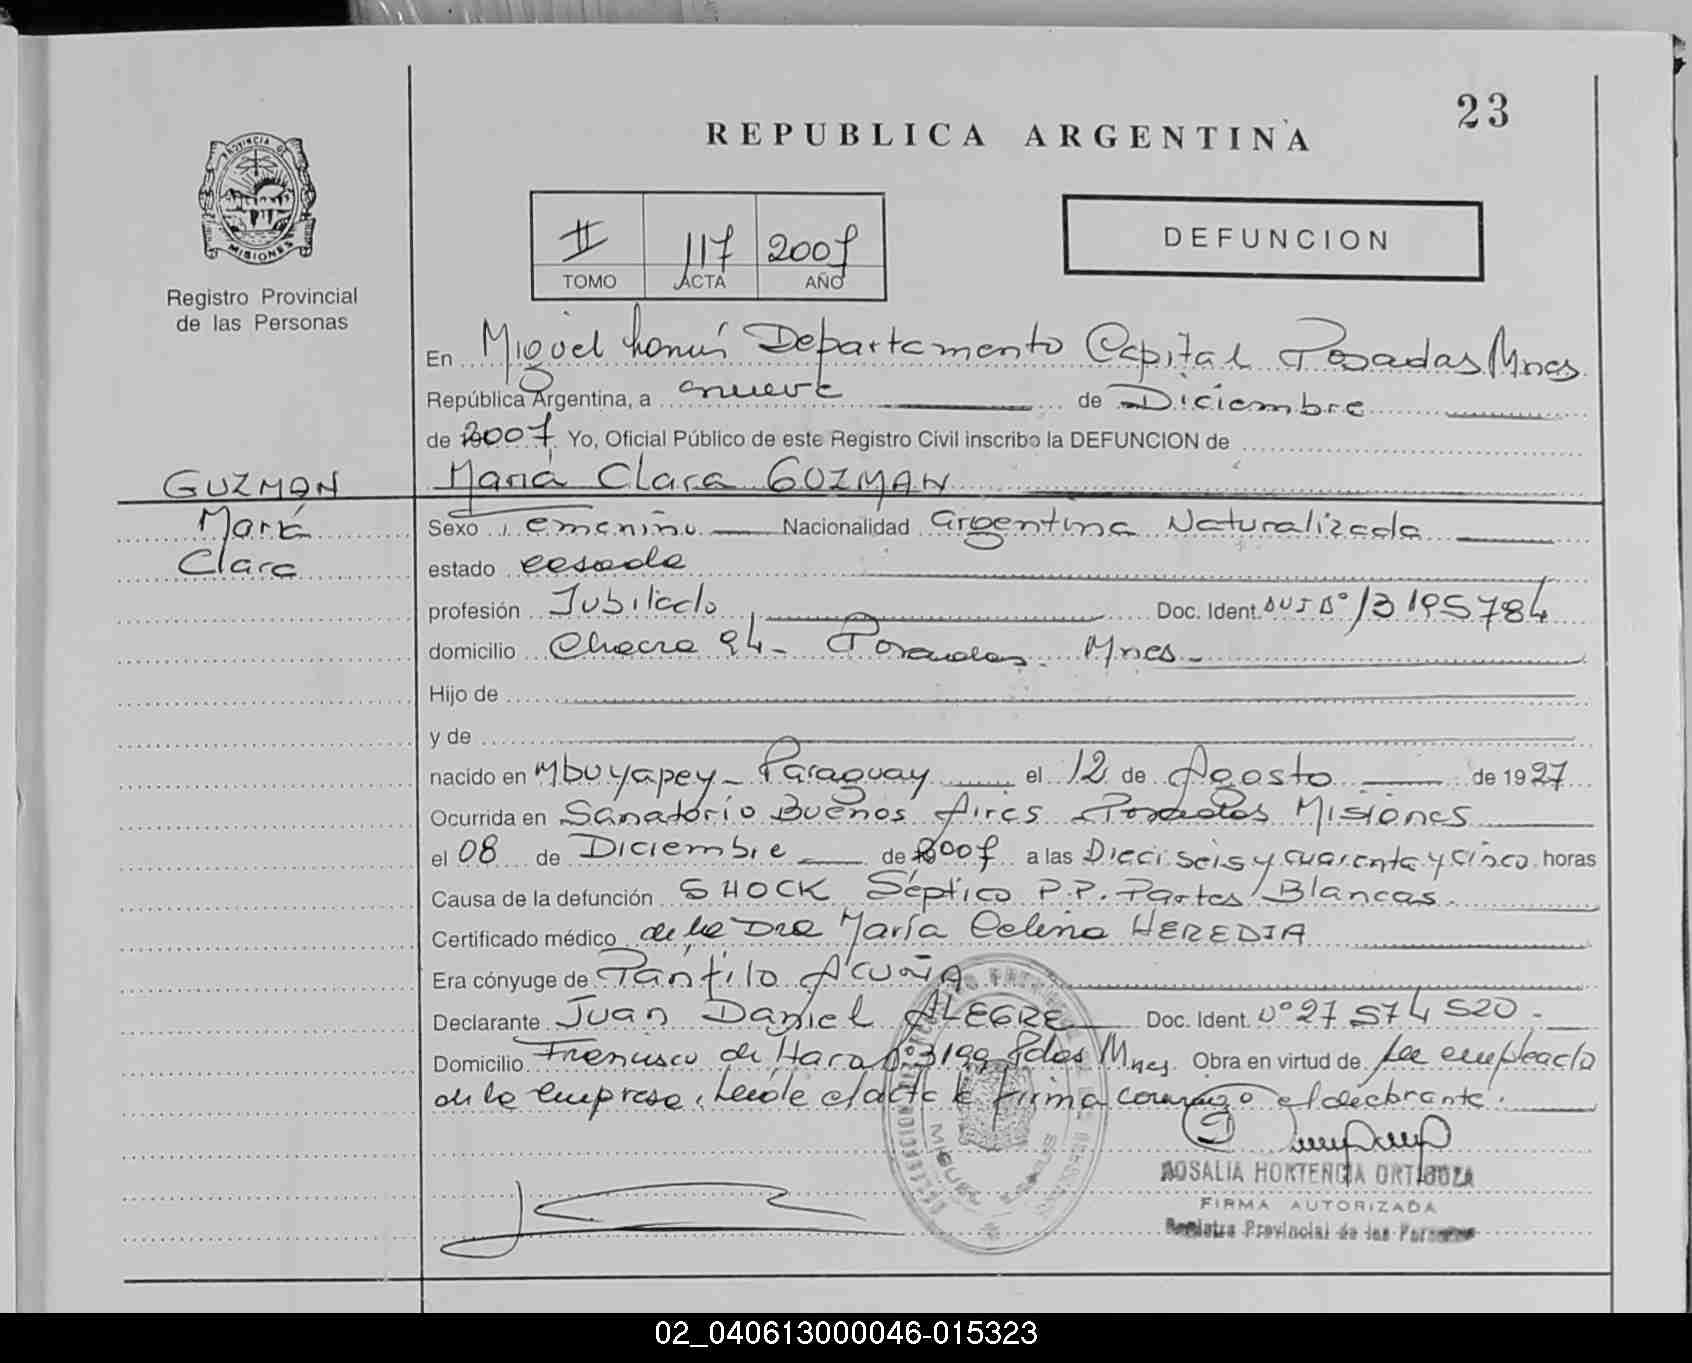 23
REPUBLICA ARGENTINA
PROVINCIA DE MISIONES
Registro Provincial
de las Personas
II 117 2007
TOMO ACTA AÑO
DEFUNCION
En Miguel Lanús Departamento Capital Posadas Mnes
República Argentina, a nueve de Diciembre
de 2007. Yo, Oficial Público de este Registro Civil inscribo la DEFUNCION de
GUZMAN María Clara GUZMAN
María
Clara
Sexo femenino Nacionalidad Argentina Naturalizada
estado casada
profesión Jubilado Doc. Ident. Nº 13195784
domicilio Chacra 94 - Posadas - Mnes -
Hijo de
y de
nacido en Mbuyapey - Paraguay el 12 de Agosto de 1927
Ocurrida en Sanatorio Buenos Aires Posadas Misiones
el 08 de Diciembre de 2007 a las Dieciseis y cuarenta y cinco horas
Causa de la defunción SHOCK Séptico P.P. Partes Blancas.
Certificado médico de la Dra María Celina HEREDIA
Era cónyuge de Panfilo ACUÑA
Declarante Juan Daniel ALEGRE Doc. Ident. Nº 27 574 520 -
Domicilio Francisco de Haro Nº 3199 Pdas Mnes. Obra en virtud de ser empleado
de la empresa. Leída el acta la firma conmigo el declarante.
ROSALIA HORTENCIA ORTIGOZA
FIRMA AUTORIZADA
Registro Provincial de las Personas
02_040613000046-015323